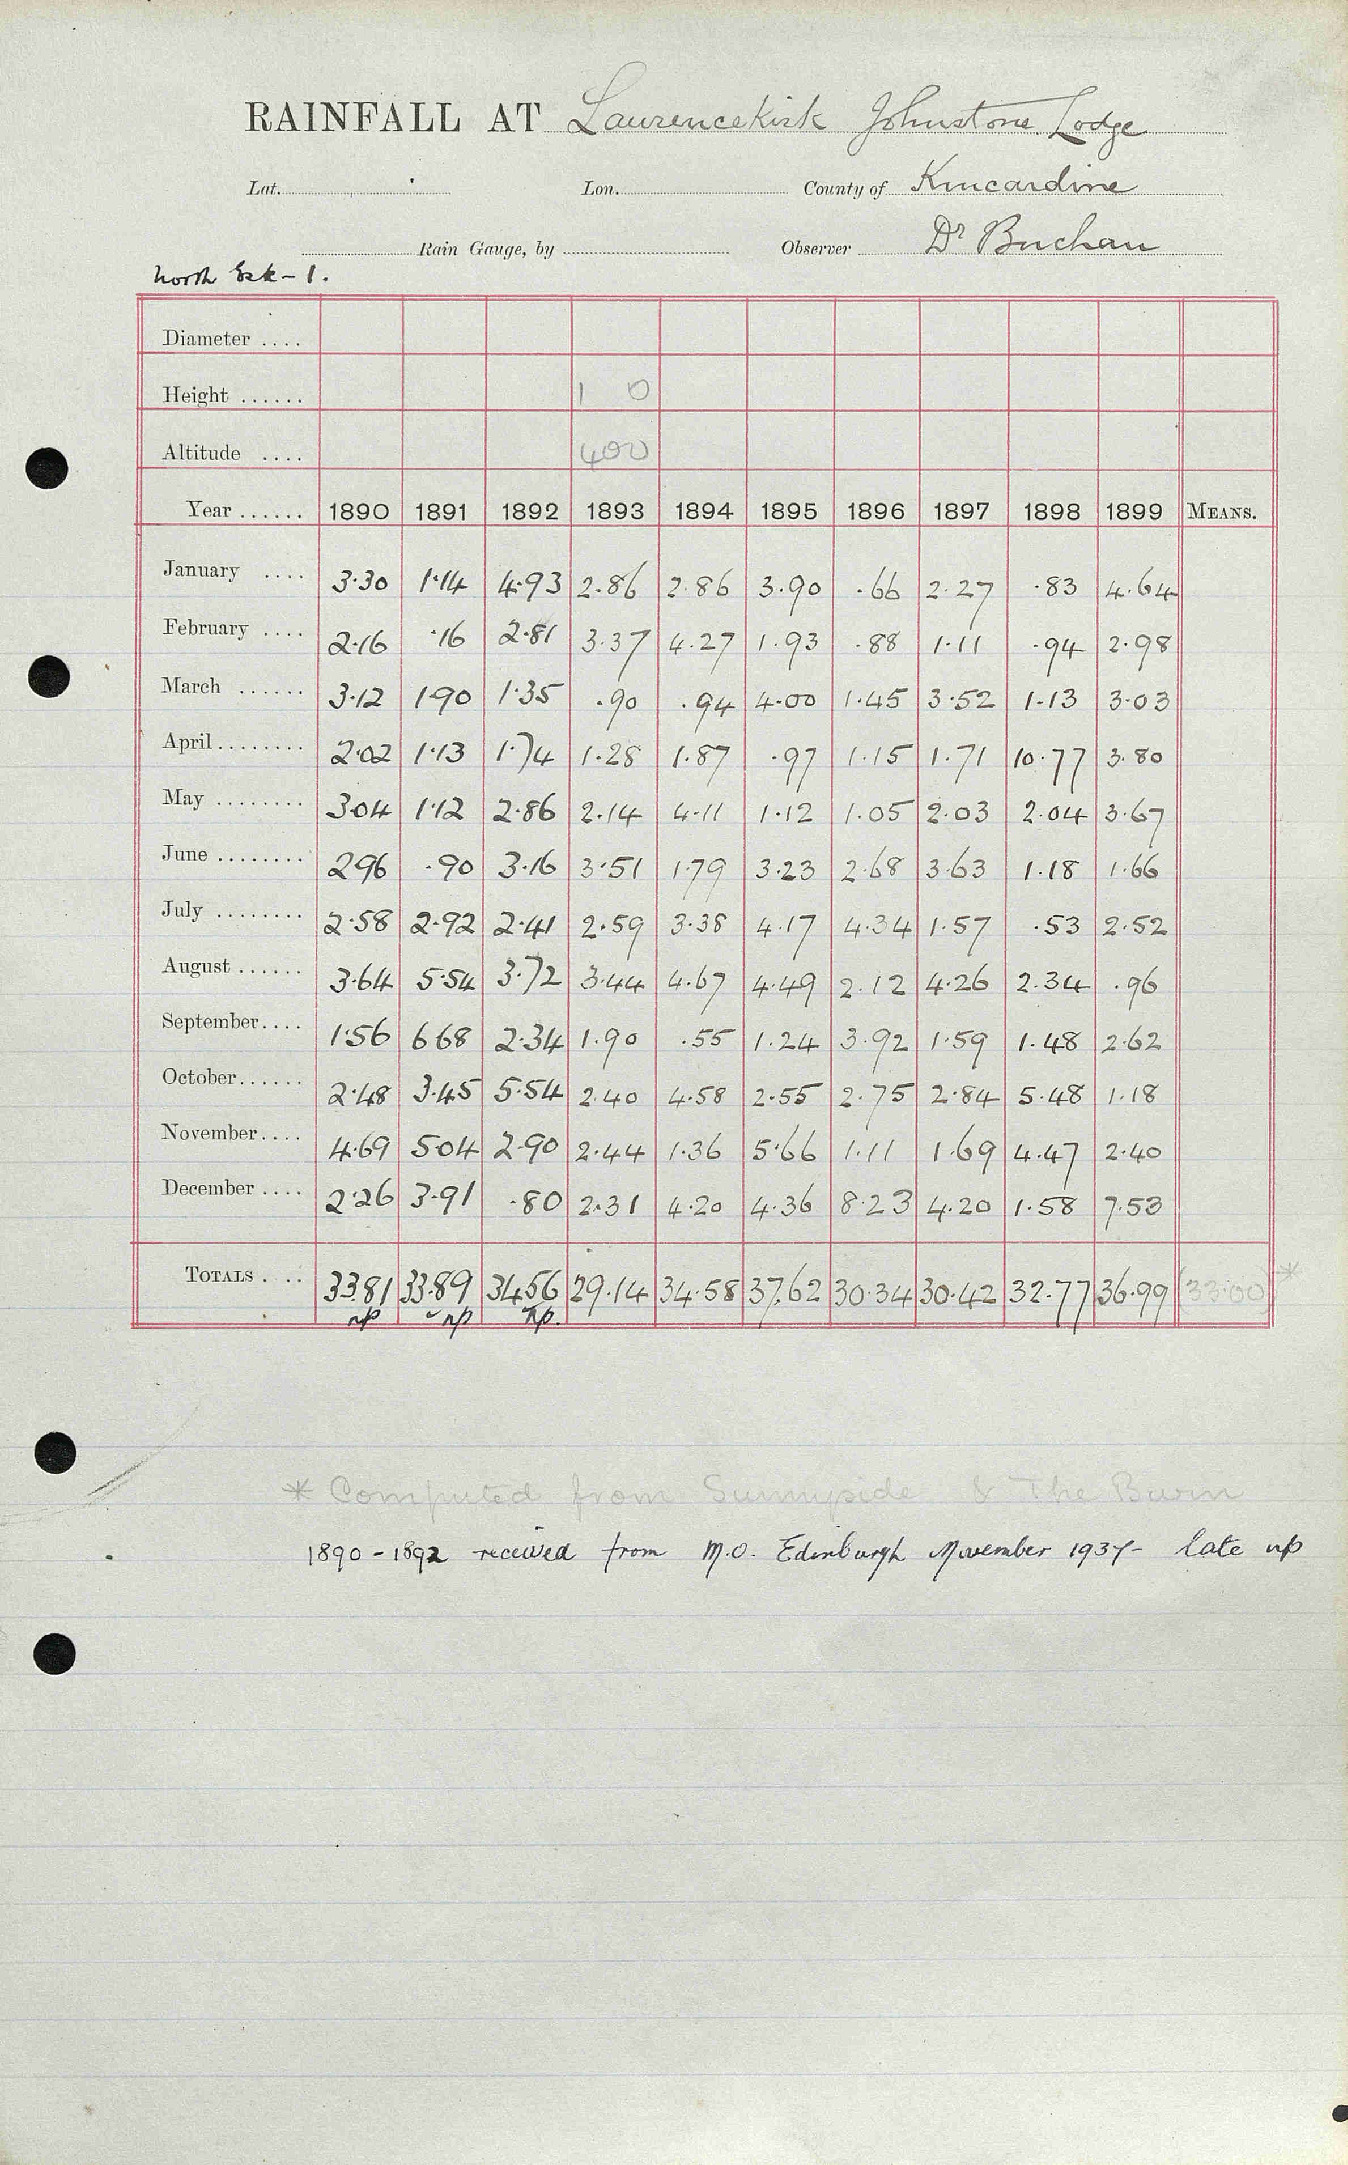 RAINFALL AT Laurencekirk Johnstone Lodge
Lat. Lon. County of Kincardine
Rain Gauge, by Observer Dr Buchan
North Esk - 1.
Diameter ....
Height ...... 1 0
Altitude .... 400
Year ...... 1890 1891 1892 1893 1894 1895 1896 1897 1898 1899 MEANS.
January .... 3.30 1.14 4.93 2.86 2.86 3.90 .66 2.27 .83 4.64
February .... 2.16 .16 2.81 3.37 4.27 1.93 .88 1.11 .94 2.98
March ...... 3.12 1.90 1.35 .90 .94 4.00 1.45 3.52 1.13 3.03
April ........ 2.02 1.13 1.74 1.28 1.87 .97 1.15 1.71 10.77 3.80
May ........ 3.04 1.12 2.86 2.14 4.11 1.12 1.05 2.03 2.04 3.67
June ........ 2.96 .90 3.16 3.51 1.79 3.23 2.68 3.63 1.18 1.66
July ........ 2.58 2.92 2.41 2.59 3.38 4.17 4.34 1.57 .53 2.52
August ...... 3.64 5.54 3.72 3.44 4.67 4.49 2.12 4.26 2.34 .96
September.... 1.56 6.68 2.34 1.90 .55 1.24 3.92 1.59 1.48 2.62
October...... 2.48 3.45 5.54 2.40 4.58 2.55 2.75 2.84 5.48 1.18
November.... 4.69 5.04 2.90 2.44 1.36 5.66 1.11 1.69 4.47 2.40
December .... 2.26 3.91 .80 2.31 4.20 4.36 8.23 4.20 1.58 7.53
TOTALS .... 33.81 33.89 34.56 29.14 34.58 37.62 30.34 30.42 32.77 36.99 (33.00)*
np np np.
* Computed from Sunnyside & The Burn
1890 - 1892 received from M.O. Edinburgh November 1937 - late np